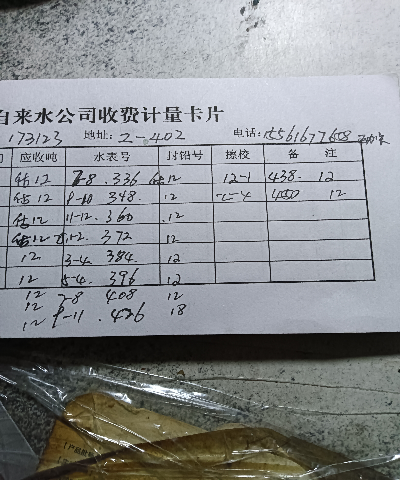 自来水公司收费计量卡片
173123 地址: 2-402 电话: 15561677658
应收吨 水表号 封铅号 换校 备 注
估12 7-8. 336 估12 12-1 438. 12
估12 9-10 348. 12 2-4 450 12
估12 11-12. 360 .12
估12 1-2. 372 12
12 3-4. 384. 12
12 5-6. 396 12
12 7-8 408 12
12 9-11. 426 18